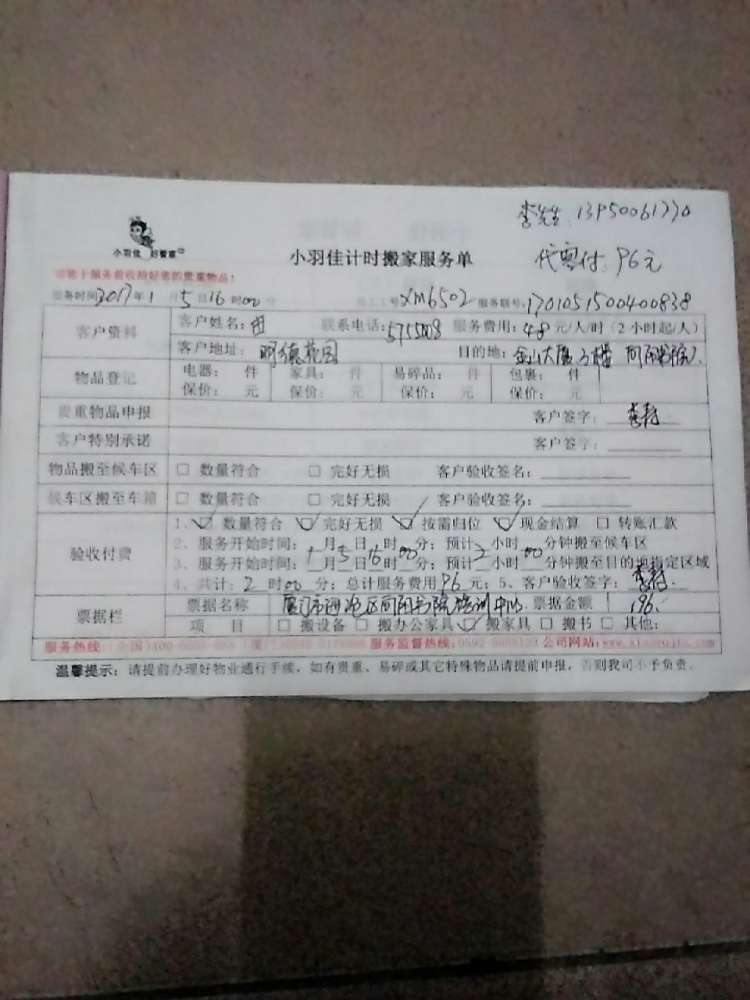 李先生 13950061770
代寄付 96元
小羽佳 好管家
小羽佳计时搬家服务单
服务时间2017年1月5日16时00分 员工工号XM6502 服务联号:1701051500400838
客户资料 客户姓名: 联系电话: 服务费用:48元/人/时(2小时起/人)
客户地址:明德花园 目的地:金山大厦
物品登记 电器: 件 家具: 件 易碎品: 件 包裹: 件
保价: 元 保价: 元 保价: 元 保价: 元
贵重物品申报 客户签字:
客户特别承诺 客户签字:
物品搬至候车区 □ 数量符合 □ 完好无损 客户验收签名:
候车区搬至车箱 □ 数量符合 □ 完好无损 客户验收签名:
验收付费 1、☑ 数量符合 ☑ 完好无损 ☑ 按需归位 ☑ 现金结算 □ 转账汇款
2、服务开始时间: 月 日 时 分;预计 小时 分钟搬至候车区
3、服务开始时间:1月5日16时00分;预计2小时00分钟搬至目的地指定区域
4、共计:2时00分;总计服务费用96元;5、客户验收签字:
票据栏 票据名称 厦门市海沧区 书院培训中心 票据金额 196.
项 目 □ 搬设备 □ 搬办公家具 ☑ 搬家具 □ 搬书 □ 其他:
服务热线: 服务监督热线: 公司网站:
温馨提示:请提前办理好物业通行手续,如有贵重、易碎或其它特殊物品请提前申报,否则我司不予负责。